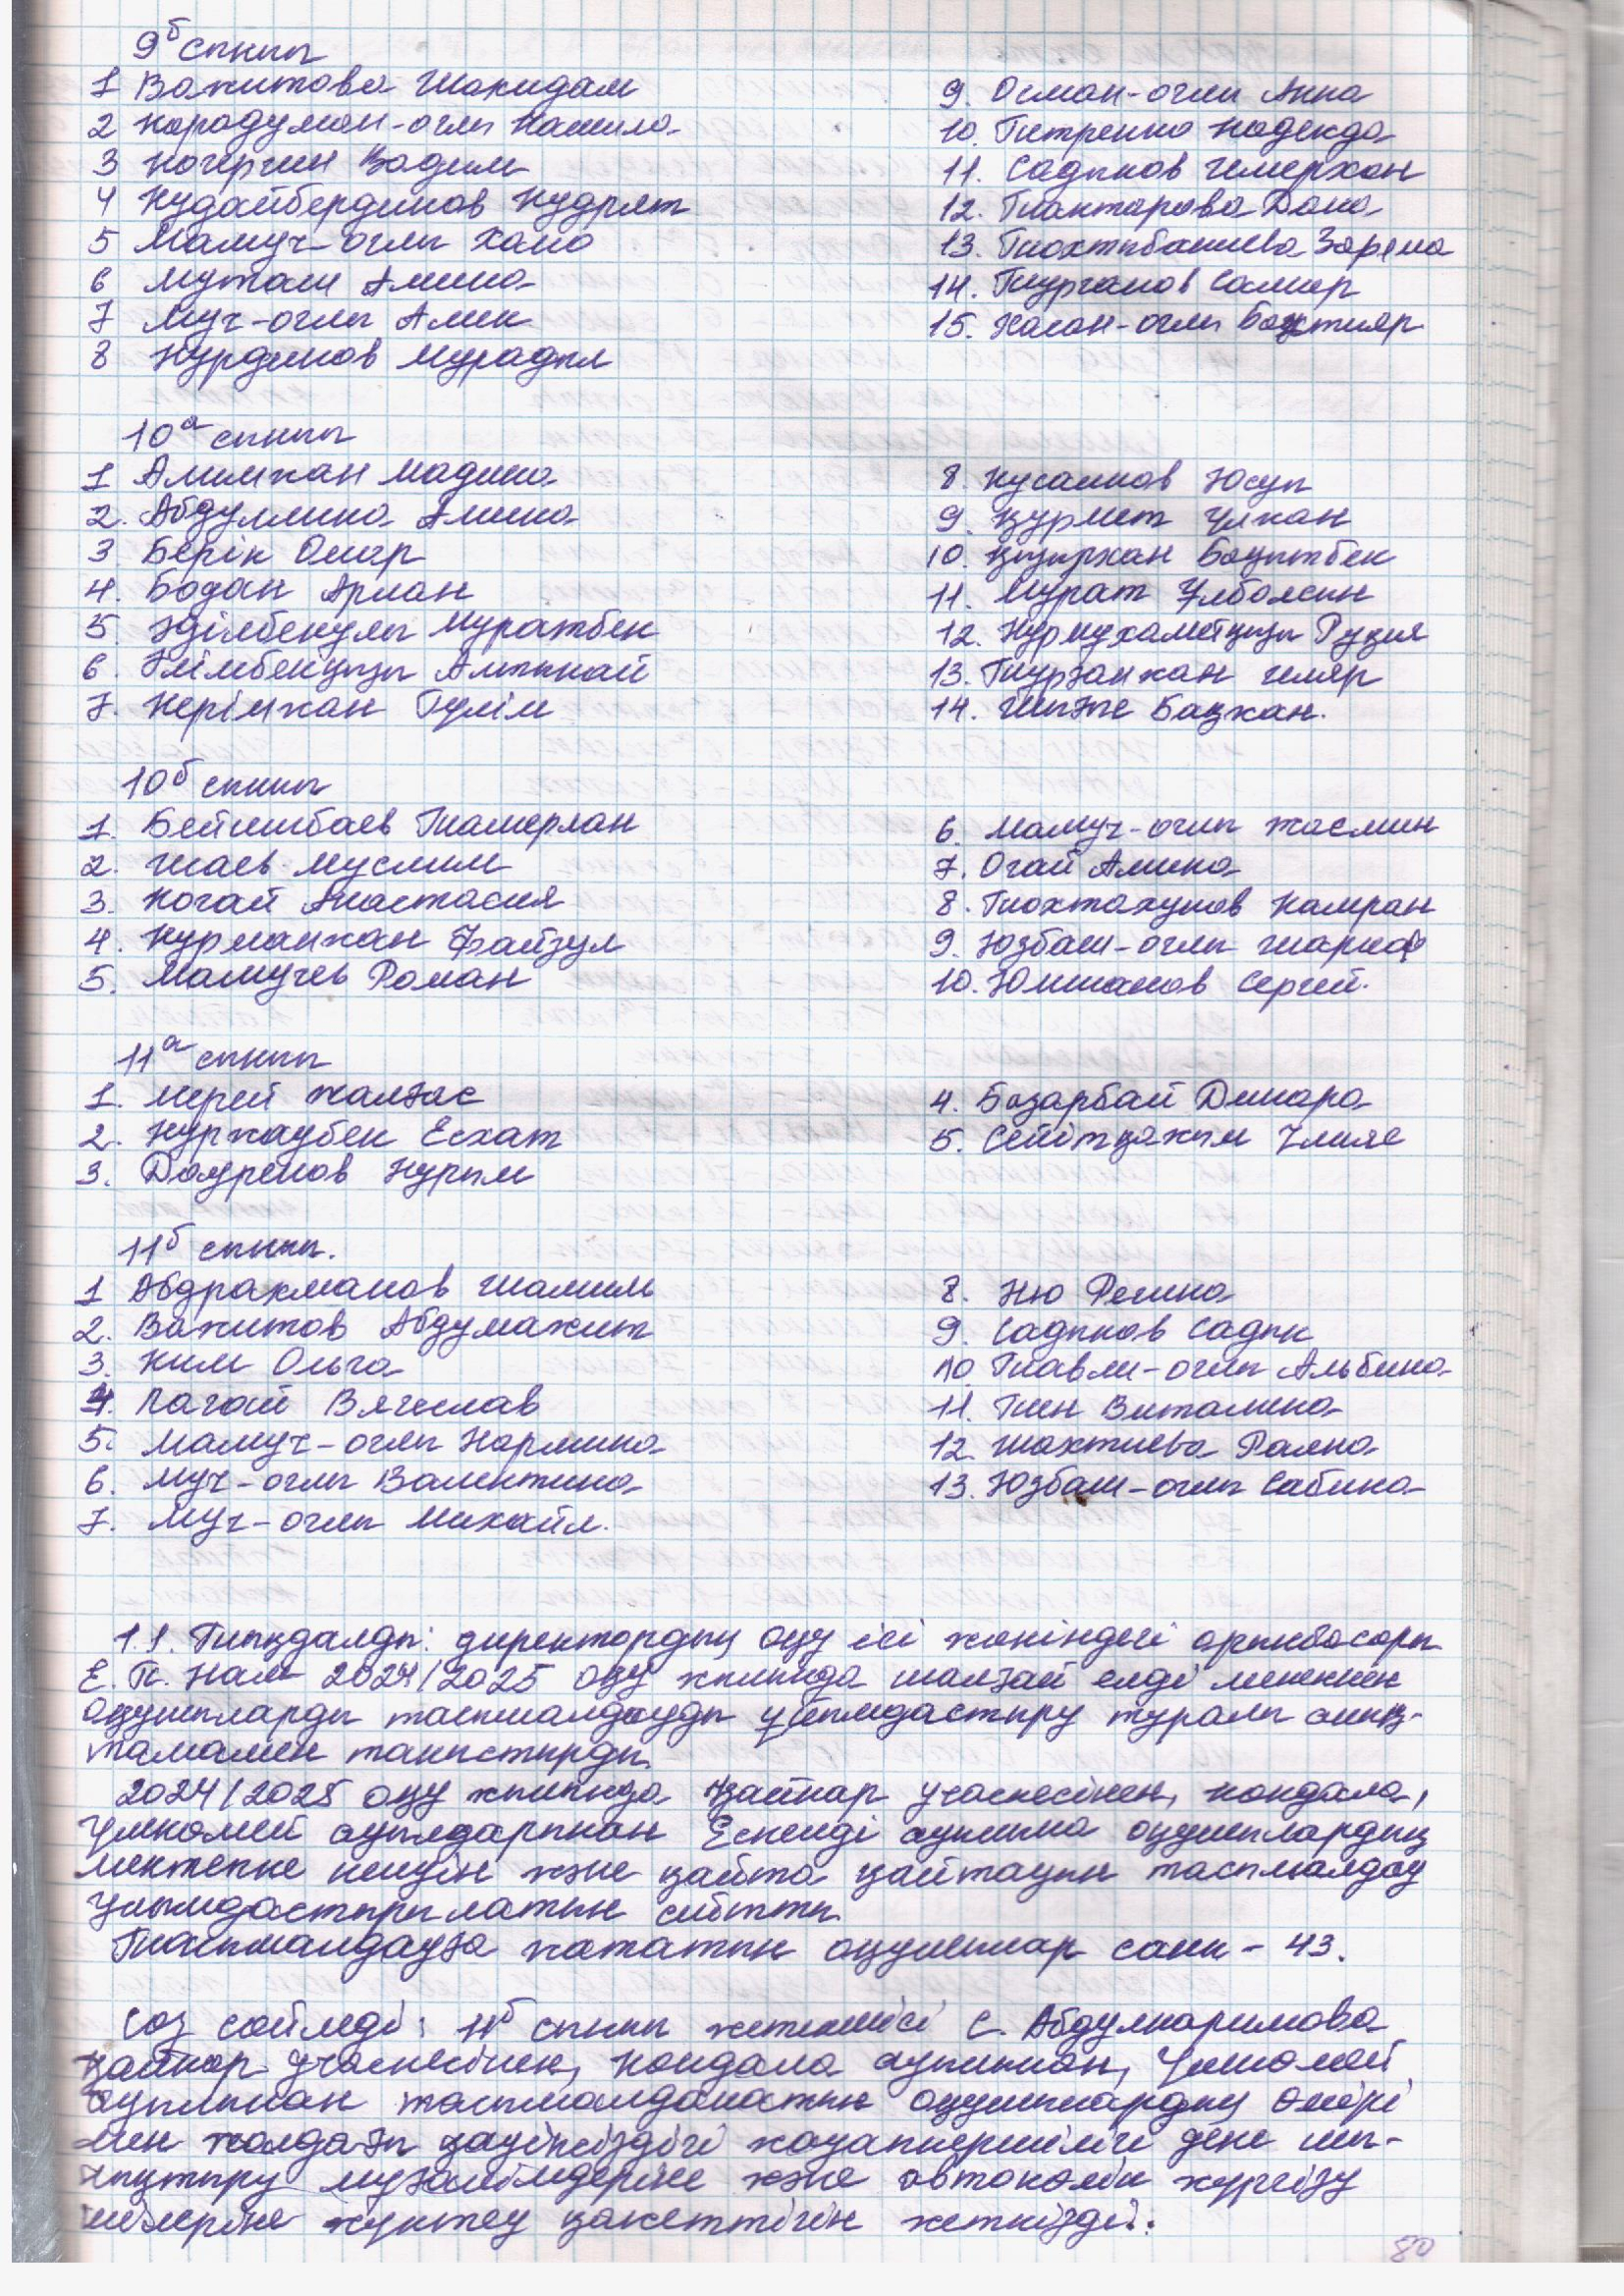 9б сынып
1 Вахитова Шахидам
2 Карадуман-оглы Камила
3 Кочергин Вадим
4 Кудайбердинов Кудрят
5 Мамуч-оглы Хано
6 Муташ Амина
7 Муч-оглы Алик
8 Нурдинов Мурадыл
9. Осман-оглы Анна
10. Петренко Надежда
11. Садыков Шмерхан
12. Тиактарова Дана
13. Тохтыбакиева Зарема
14. Турганов Самир
15. Хасан-оглы Бахтияр
10а сынып
1 Алимхан Мадина
2. Абдуллина Амина
3 Берік Омар
4. Бодан Арлан
5. Әділбекұлы Мұратбек
6. Әлімбекқызы Алтынай
7. Керімхан Гүлім
8. Кусаинов Юсуп
9. Құрмет Ұлжан
10. Қызырхан Бақытбек
11. Мұрат Ұлболсын
12. Нурмухаметқызы Рузия
13. Тұрғанжан Іляр
14. Шығже Бақжан.
10б сынып
1. Бейшбаев Тамерлан
2. Исаев Муслим
3. Когай Анастасия
4. Курманжан Файзул
5. Мамучев Роман
6. Мамуч-оглы Жасмин
7. Огай Амина
8. Тохтахунов Камран
9. Юзбаш-оглы Шариф
10. Юмшанов Сергей.
11а сынып
1. Мерей Жалғас
2. Нуржаубек Есхат
3. Дауренов Нурым
4. Базарбай Динара
5. Сейітқажым Ұлияс
11б сынып.
1 Абдрахманов Шамиль
2. Вахитов Абдумажит
3. Ким Ольга
4. Лагай Вячеслав
5. Мамуч-оглы Нармина
6. Муч-оглы Валентина
7. Муч-оглы Михаил.
8. Ню Регина
9. Садыков Садык
10 Тавли-оглы Альбина
11. Тен Виталина
12. Шахтиева Раяна
13. Юзбаш-оглы Сабина
1.1. Тыңдалды: директордың оқу ісі жөніндегі орынбасары
Е. Т. Нам 2024/2025 оқу жылында шалғай елді мекеннен
оқушыларды тасымалдауды ұйымдастыру туралы анық-
тамамен таныстырды.
2024/2025 оқу жылында Қайнар учаскесінен, Кокдала,
Үшкөмей ауылдарынан Ескелді ауылына оқушылардың
мектепке келуін және қайта қайтауын тасымалдау
ұйымдастырылатын айтты.
Тасымалдауға жататын оқушылар саны - 43.
Сөз сөйледі: 11б сынып жетекшісі С. Абдулкаримова
Қайнар учаскесінен, Кокдала ауылынан, Үшкөмей
ауылынан тасымалданатын оқушылардың өмірі
мен жолдағы қауіпсіздігі жауапкершілігі дене шы-
нықтыру мұғалімдеріне және автокөлік жүргізу
шілеріне жүктеу қажеттігін жеткізді.
80